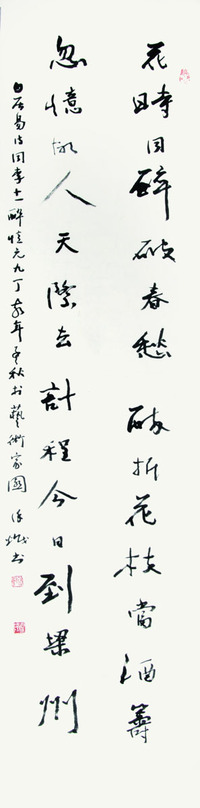 花時同醉破春愁醉折花枝當酒籌
忽憶故人天際去計程今日到梁州
白居易诗同李十一醉憶元九丁亥年孟秋於藝術家園